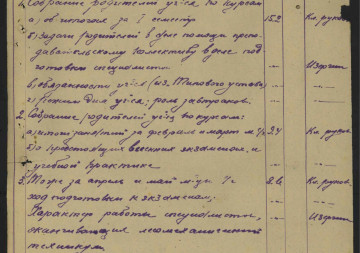 1. Собрание родителей уч-ся по курсам
а) об итогах за I семестр 15.2 Кл. руков.
б) задачи родителей в деле помощи препо-
давательскому коллективу в деле под-
готовки специалиста
в) обязанности уч-ся (из Типового устава)
г) Режим дня уч-ся; роль завтраков.
2. Собрание родителей уч-ся по курсам:
а) итоги занятий за февраль и март м-ц 2.4 Кл. руков
б) о предстоящих весенних экзаменах, и
учебной практике
3. То же за апрель и май м-цы 2.6 Кл. руков
ход подготовки к экзаменам;
Характер работы специалиста,
оканчивающих лесомеханический
техникум